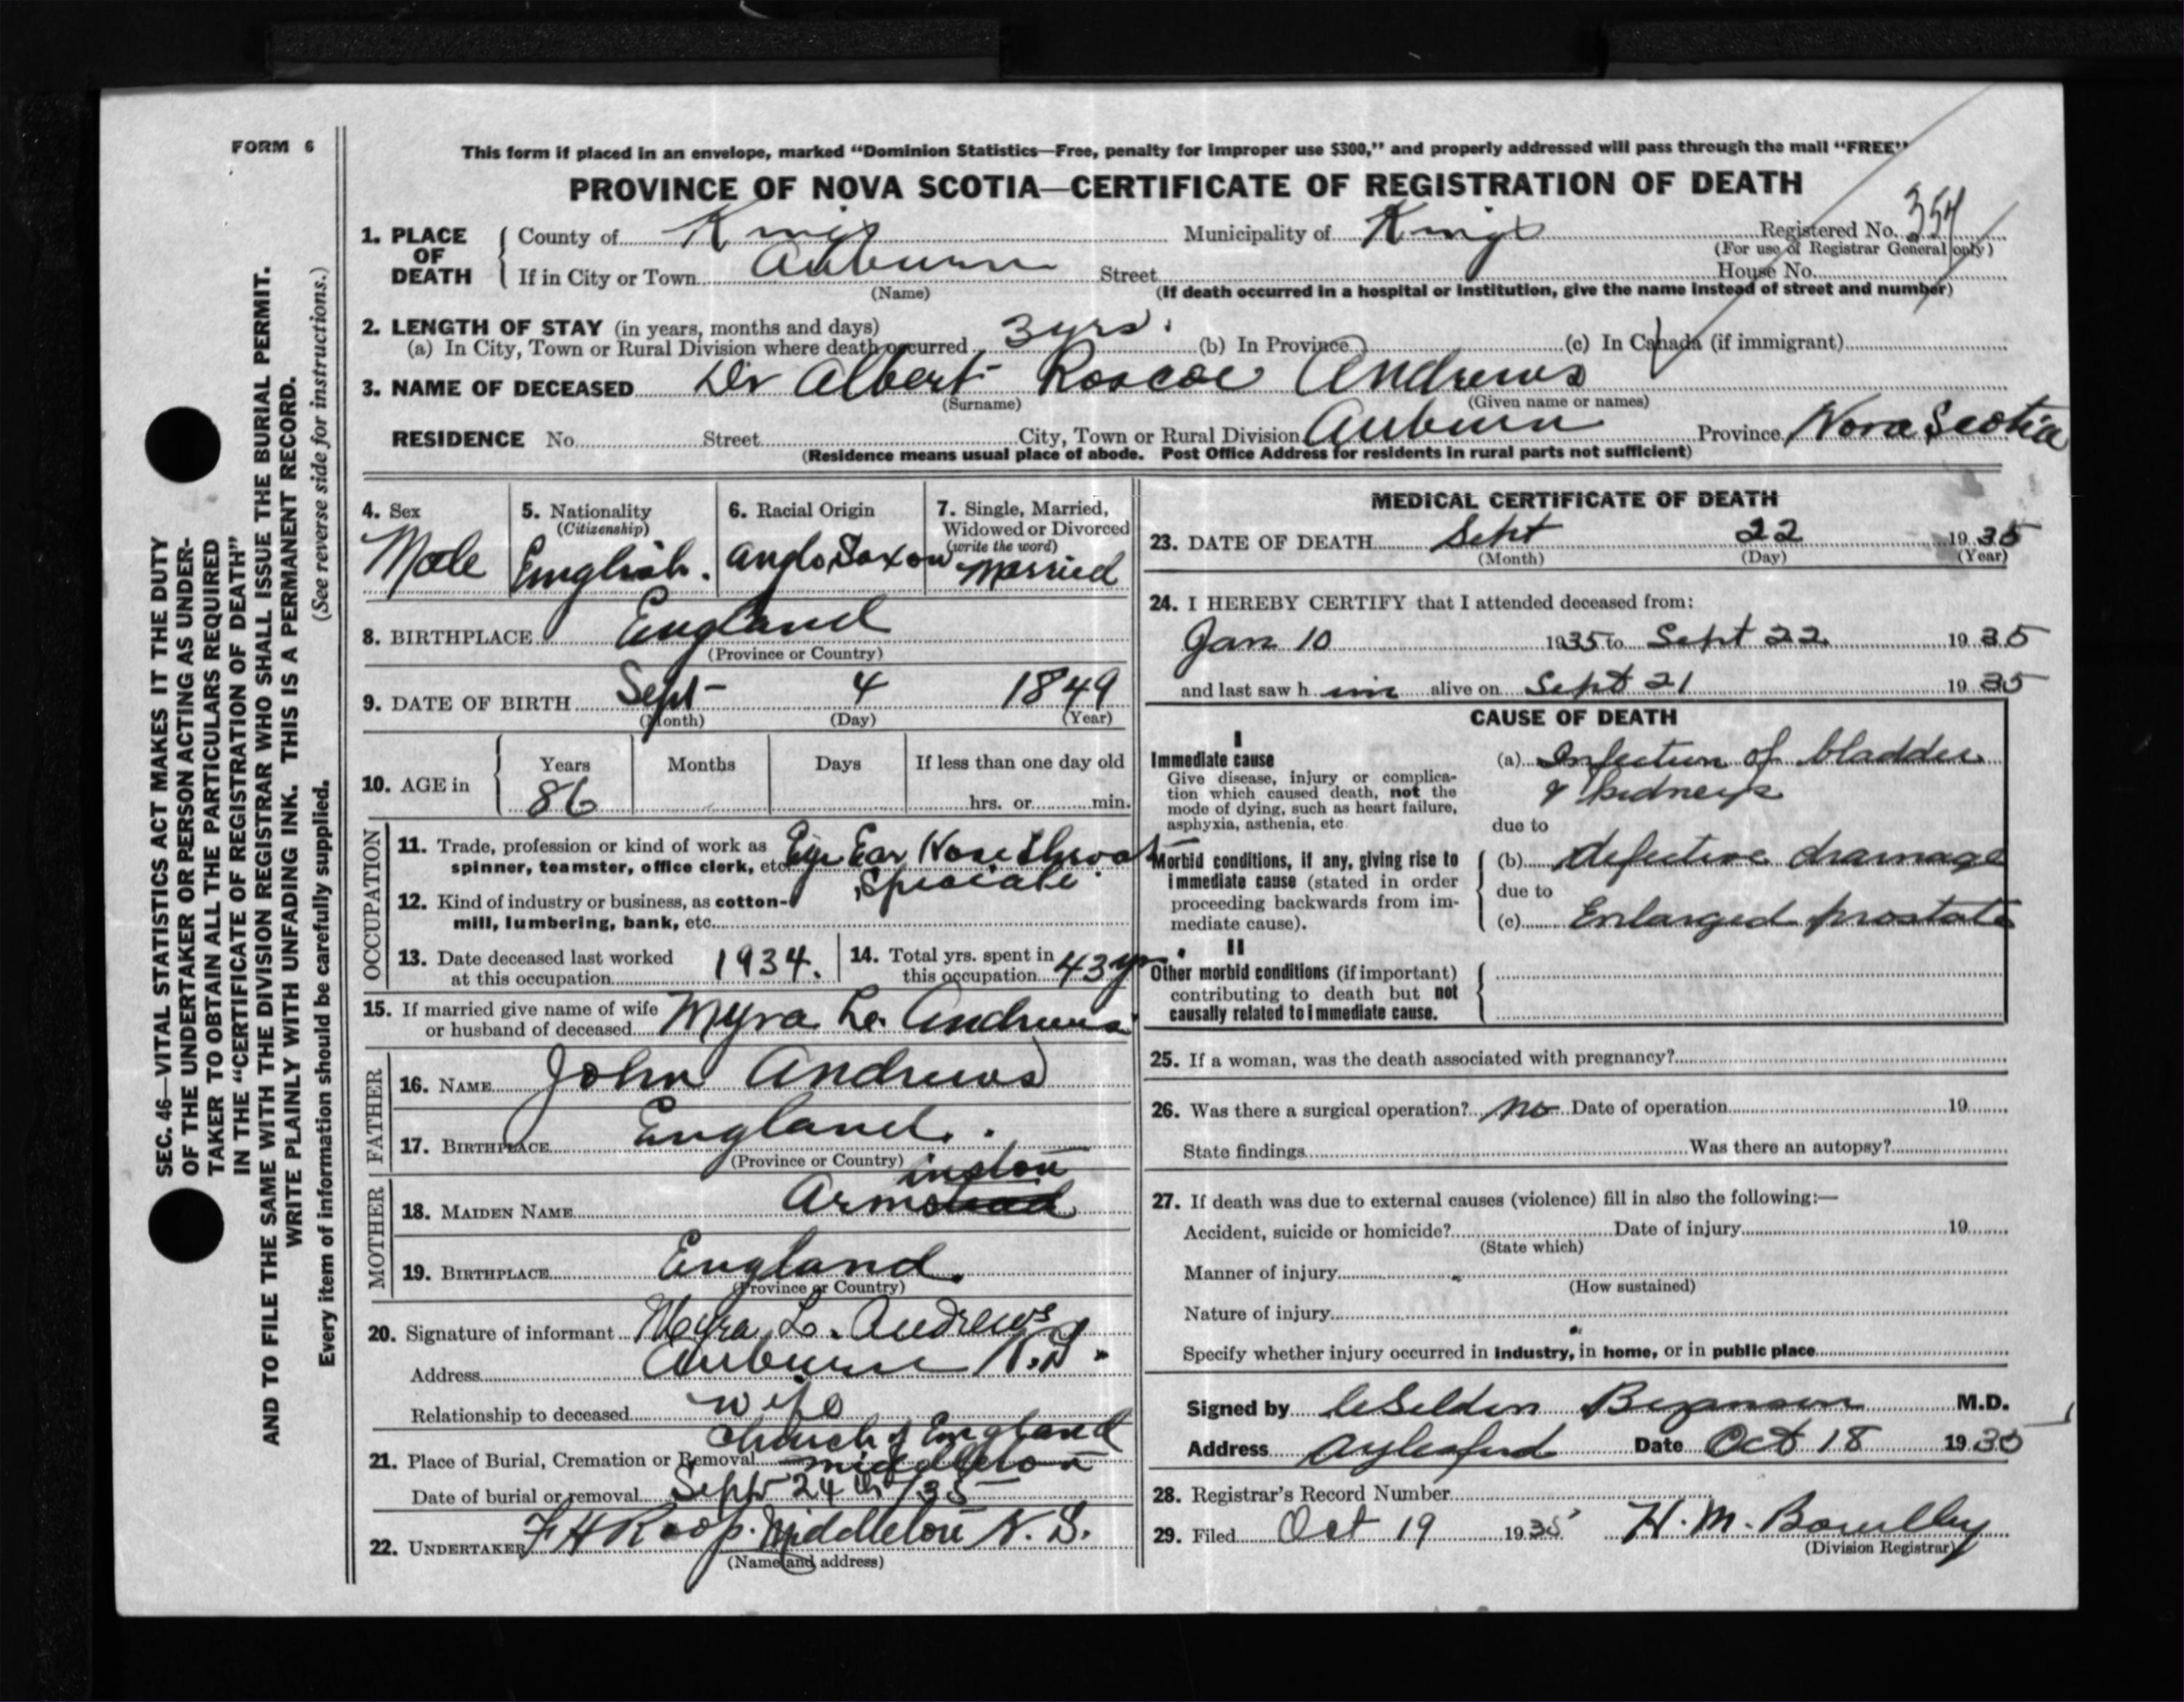 FORM 6
SEC. 46—VITAL STATISTICS ACT MAKES IT THE DUTY
OF THE UNDERTAKER OR PERSON ACTING AS UNDER-
TAKER TO OBTAIN ALL THE PARTICULARS REQUIRED
IN THE "CERTIFICATE OF REGISTRATION OF DEATH"
AND TO FILE THE SAME WITH THE DIVISION REGISTRAR WHO SHALL ISSUE THE BURIAL PERMIT.
WRITE PLAINLY WITH UNFADING INK. THIS IS A PERMANENT RECORD.
Every item of information should be carefully supplied. (See reverse side for instructions.)
This form if placed in an envelope, marked "Dominion Statistics—Free, penalty for improper use $300," and properly addressed will pass through the mail "FREE"
PROVINCE OF NOVA SCOTIA—CERTIFICATE OF REGISTRATION OF DEATH
1. PLACE OF DEATH County of Kings Municipality of Kings Registered No. 354
(For use of Registrar General only)
If in City or Town Auburn Street House No.
(Name) (If death occurred in a hospital or institution, give the name instead of street and number)
2. LENGTH OF STAY (in years, months and days)
(a) In City, Town or Rural Division where death occurred 3 yrs. (b) In Province (c) In Canada (if immigrant)
3. NAME OF DECEASED Dr Albert Roscoe Andrews
(Surname) (Given name or names)
RESIDENCE No. Street City, Town or Rural Division Auburn Province Nova Scotia
(Residence means usual place of abode. Post Office Address for residents in rural parts not sufficient)
4. Sex Male
5. Nationality (Citizenship) English.
6. Racial Origin Anglo Saxon
7. Single, Married, Widowed or Divorced (write the word) Married
8. BIRTHPLACE England
(Province or Country)
9. DATE OF BIRTH Sept 4 1849
(Month) (Day) (Year)
10. AGE in Years Months Days If less than one day old
86 hrs. or min.
OCCUPATION
11. Trade, profession or kind of work as Eye Ear Nose Throat
spinner, teamster, office clerk, etc.
12. Kind of industry or business, as cotton-
mill, lumbering, bank, etc.
13. Date deceased last worked at this occupation 1934.
14. Total yrs. spent in this occupation 43 yrs.
15. If married give name of wife
or husband of deceased Myra L. Andrews
FATHER
16. NAME John Andrews
17. BIRTHPLACE England.
(Province or Country)
MOTHER
inston
18. MAIDEN NAME Armstead
19. BIRTHPLACE England.
(Province or Country)
20. Signature of informant Myra L. Andrews
Address Auburn N.S.
Relationship to deceased wife
Church of England
21. Place of Burial, Cremation or Removal Middleton
Date of burial or removal Sept 24th /35
22. UNDERTAKER F H Roop. Middleton N.S.
(Name and address)
MEDICAL CERTIFICATE OF DEATH
23. DATE OF DEATH Sept 22 1935
(Month) (Day) (Year)
24. I HEREBY CERTIFY that I attended deceased from:
Jan 10 1935 to Sept 22 1935
and last saw h im alive on Sept 21 1935
CAUSE OF DEATH
I
Immediate cause
Give disease, injury or complica-
tion which caused death, not the
mode of dying, such as heart failure,
asphyxia, asthenia, etc.
(a) Infection of bladder
& kidneys
due to
Morbid conditions, if any, giving rise to
immediate cause (stated in order
proceeding backwards from im-
mediate cause).
(b) defective drainage
due to
(c) Enlarged prostate
II
Other morbid conditions (if important)
contributing to death but not
causally related to immediate cause.
25. If a woman, was the death associated with pregnancy?
26. Was there a surgical operation? no Date of operation 19
State findings Was there an autopsy?
27. If death was due to external causes (violence) fill in also the following:—
Accident, suicide or homicide? Date of injury 19
(State which)
Manner of injury
(How sustained)
Nature of injury
Specify whether injury occurred in industry, in home, or in public place
Signed by Selden Bezanson M.D.
Address Aylesford Date Oct 18 1935
28. Registrar's Record Number
29. Filed Oct 19 1935 H. M.
(Division Registrar)